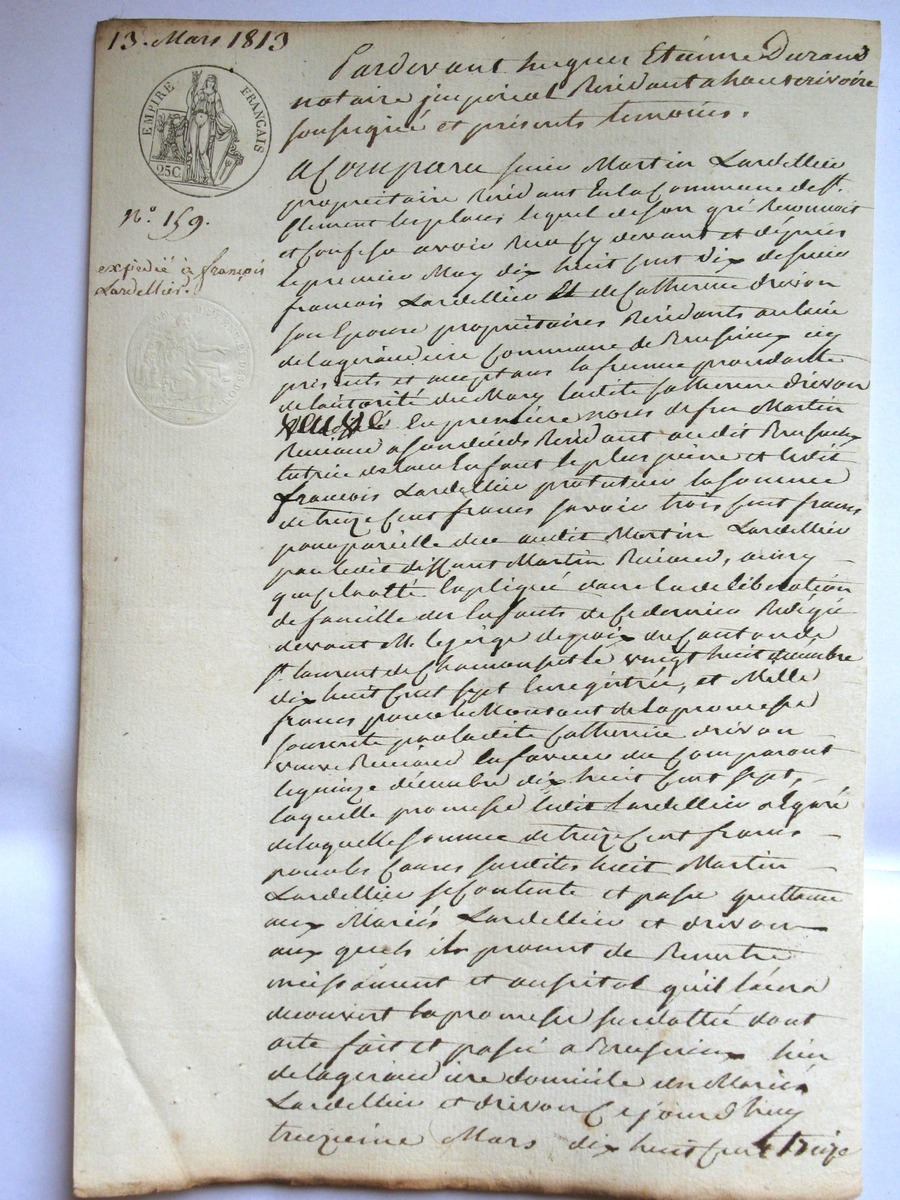 13. Mars 1813
EMPIRE FRANÇAIS
25C
N.º 159.
expédié à françois
Lardellier.
Pardevant hugues Etienne Durand
notaire jmperial Residant a hauterivoire
soussigné et présents temoins.
a Comparu sieur Martin Lardellier
propriétaire Residant En la Commune de st.
Clement les places lequel de son gré Reconnoit
et Confesse avoir Reçu cy devant et dépuis
le premier May dix huit cent dix de sieur
françois Lardellier Et de Catherine drivon
son Epouse propriétaires Résidants au lieu
de la giraudiere Commune de Brussieux icy
présents et acceptans la femme procédante
de l'autorité du Mary ladite Catherine drivon
veuve En première noces de feu Martin
a son décès Residant au dit Brussieux
tutrice de leur Enfant le plus jeune et ledit
françois Lardellier protuteur la somme
de treize cent francs savoir trois cent francs
pour pareille due audit Martin Lardellier
par ledit deffunt Martin ainsy
que cela a été Expliqué dans la délibération
de famille des Enfants de ce dernier Rédigée
devant M. le juge de paix du Canton de
st. laurent de Chamousset le vingt huit décembre
dix huit Cent sept Enregistrée, et Mille
francs pour le Montant de la promesse
souscrite par ladite Catherine drivon
veuve En faveur du Comparant
le quinze décembre dix huit Cent sept,
laquelle promesse ledit Lardellier a Egaré
de laquelle somme de treize Cent francs
pour les Causes susdites Martin
Lardellier se Contente et passe quittance
aux Mariés Lardellier et drivon
aux quels il promet de Remettre
et aussitot qu'il l'aura
decouvert la promesse sus dattée dont
acte fait et passé a Brussieux lieu
de la giraudiere domicile des Mariés
Lardellier et drivon Ce jourd'huy
treizieme Mars dix huit Cent treize